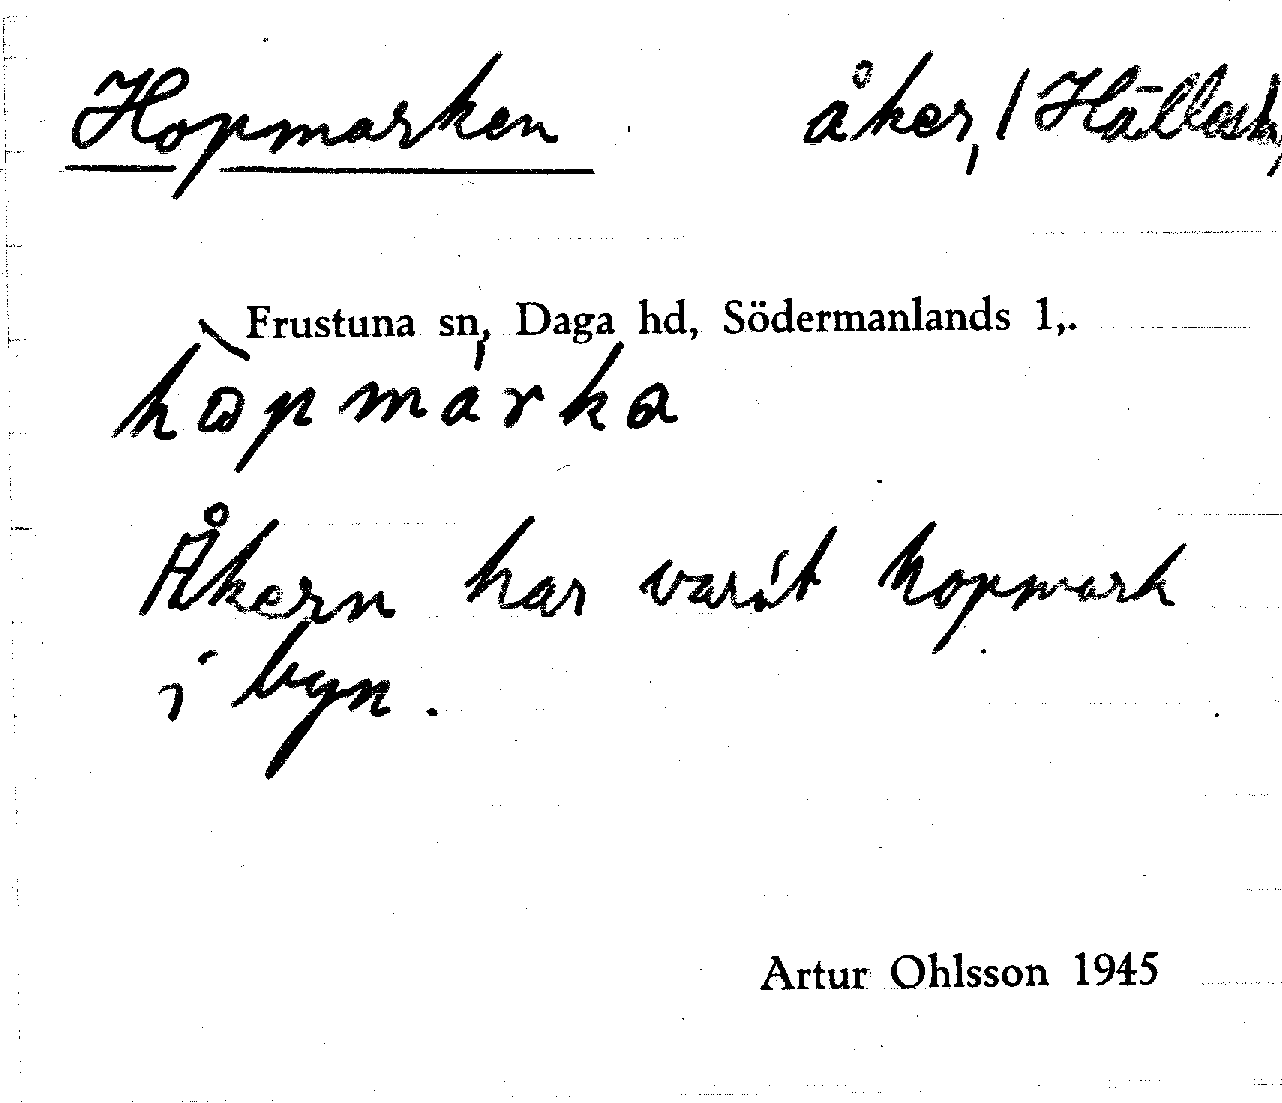 Hopmarken åker, / Hällesta,
Frustuna sn, Daga hd, Södermanlands l,.
hòpmárka
Åkern har varit hopmark
i byn.
Artur Ohlsson 1945